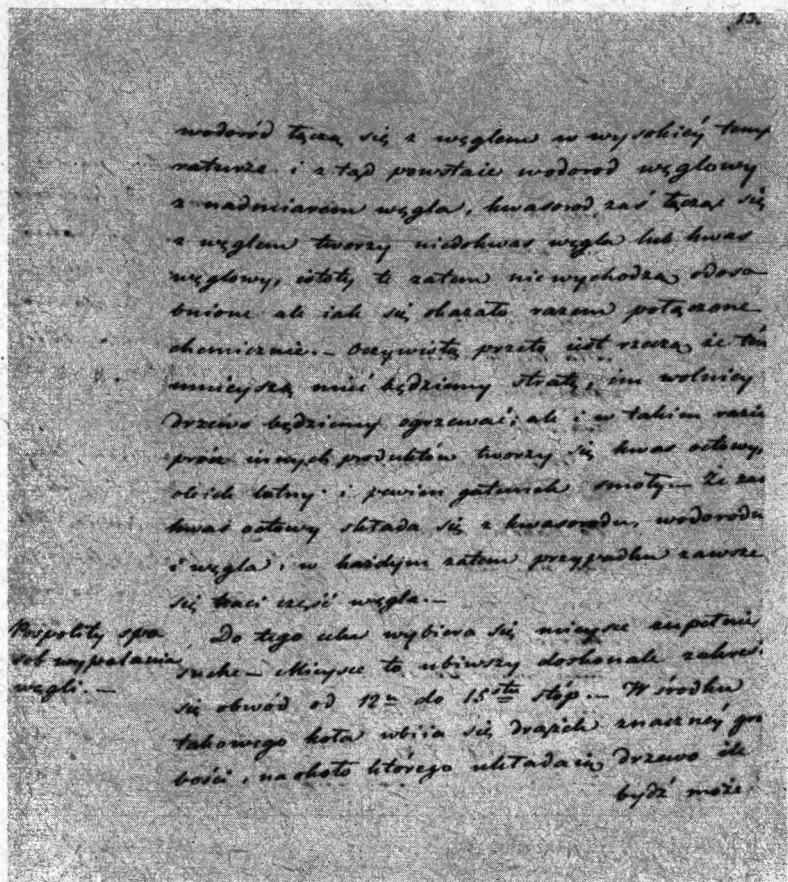 13.
wodoród łączą się z węglem w wysokiéy tempe
raturze i z tąd powstaie wodorod węglowy
z nadmiarem węgla, kwasorod zaś łącząc się
z węglem tworzy niedokwas węgla lub kwas
węglowy, istoty te zatem niewychodzą odoso
bnione ale iak się okazało razem połączone
chemicznie. – Oczywistą przeto iest rzeczą że tém
mnieyszą mieć będziemy stratę, im wolniey
drzewo będziemy ogrzewać; ale i w takim razie
prócz innych produktów tworzy się kwas octowy,
oleiek lotny i pewien gatunek smoły. – Że zaś
kwas octowy składa się z kwasorodu, wodorodu
i węgla, w każdym zatem przypadku zawsze
się traci część węgla. –
Pospolity spo
sob wypalania
węgli. –
Do tego celu wybiera się mieysce zupełnie
suche – Mieysce to ubiwszy doskonale zakreśl
się obwód od 12u do 15stu stóp. – W środku
takowego koła wbiia się drążek znacznéy gru
bości, naokoło którego układaią drzewo ile
bydź może